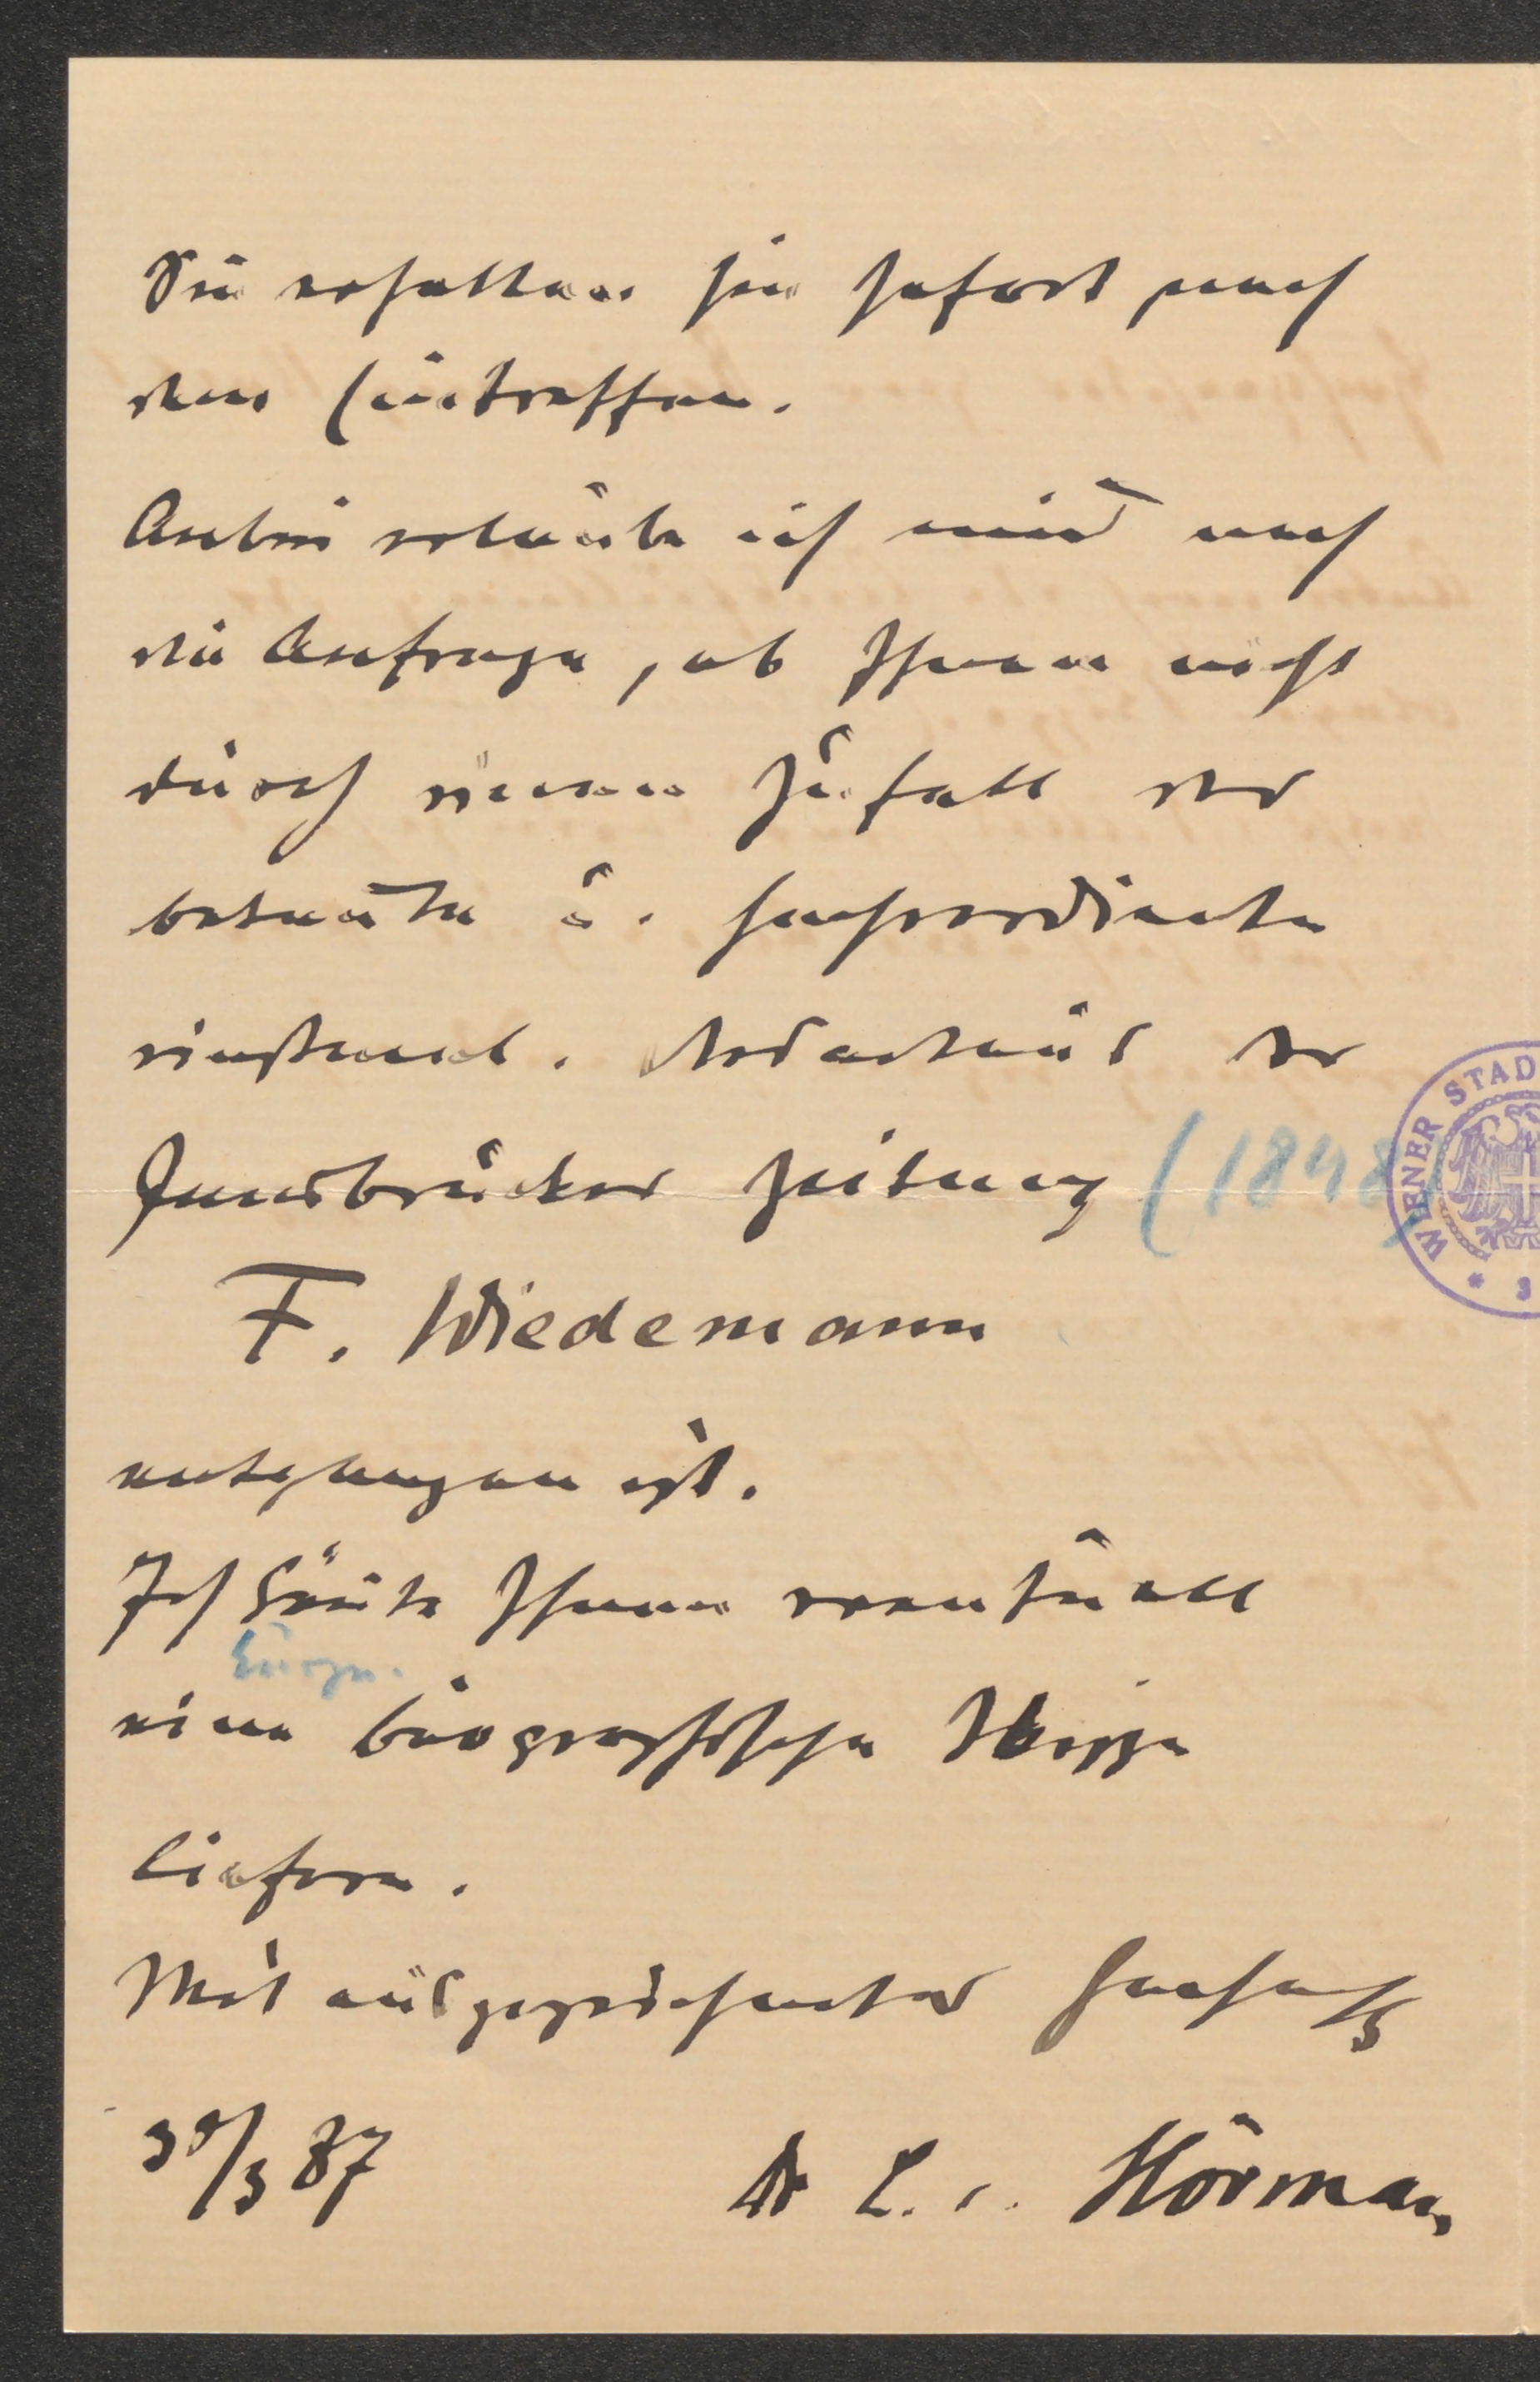 Sie erhalten sie sofort nach
dem Eintreffen.
Anbei erlaube ich mir noch
die Anfrage, ob Ihnen nicht
durch einen Zufall der
bekannte u. hochverdiente
einstmal. Redacteur der
Innsbrucker Zeitung (1848)
F. Wiedemann
entgangen ist.
Ich könnte Ihnen eventuell
kurze
eine biographische Skizze
liefern.
Mit ausgezeichneter Hochachtg
30/3 87 Dr L. v. Hörmann
WIENER STAD